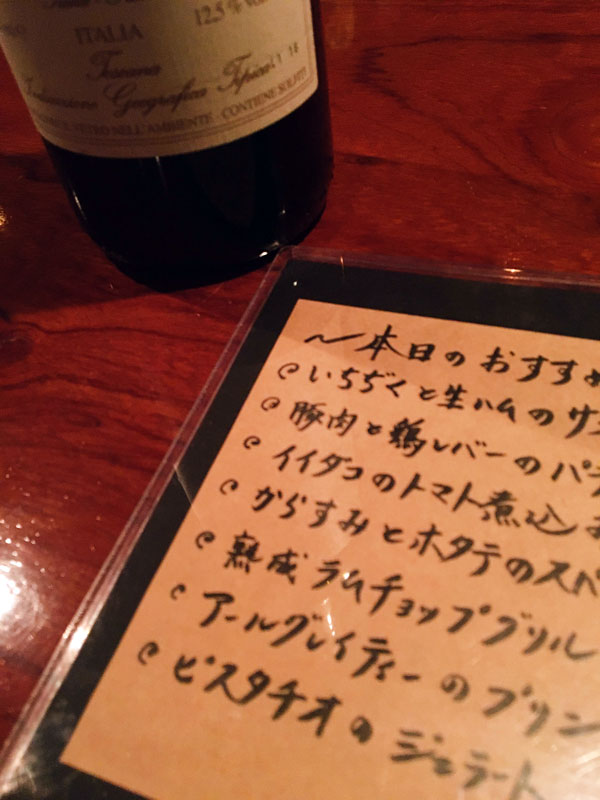 ITALIA
12.5 % VOL
Toscana
Indicazione Geografica Tipica
VETRO NELL'AMBIENTE - CONTIENE SOLFITI
〜本日のおすすめ
@いちぢくと生ハムのサ
@豚肉と鶏レバーのパテ
@イイダコのトマト煮込み
@からすみとホタテのスパ
@熟成ラムチョップグリル
@アールグレイティーのプリン
@ピスタチオのジェラート